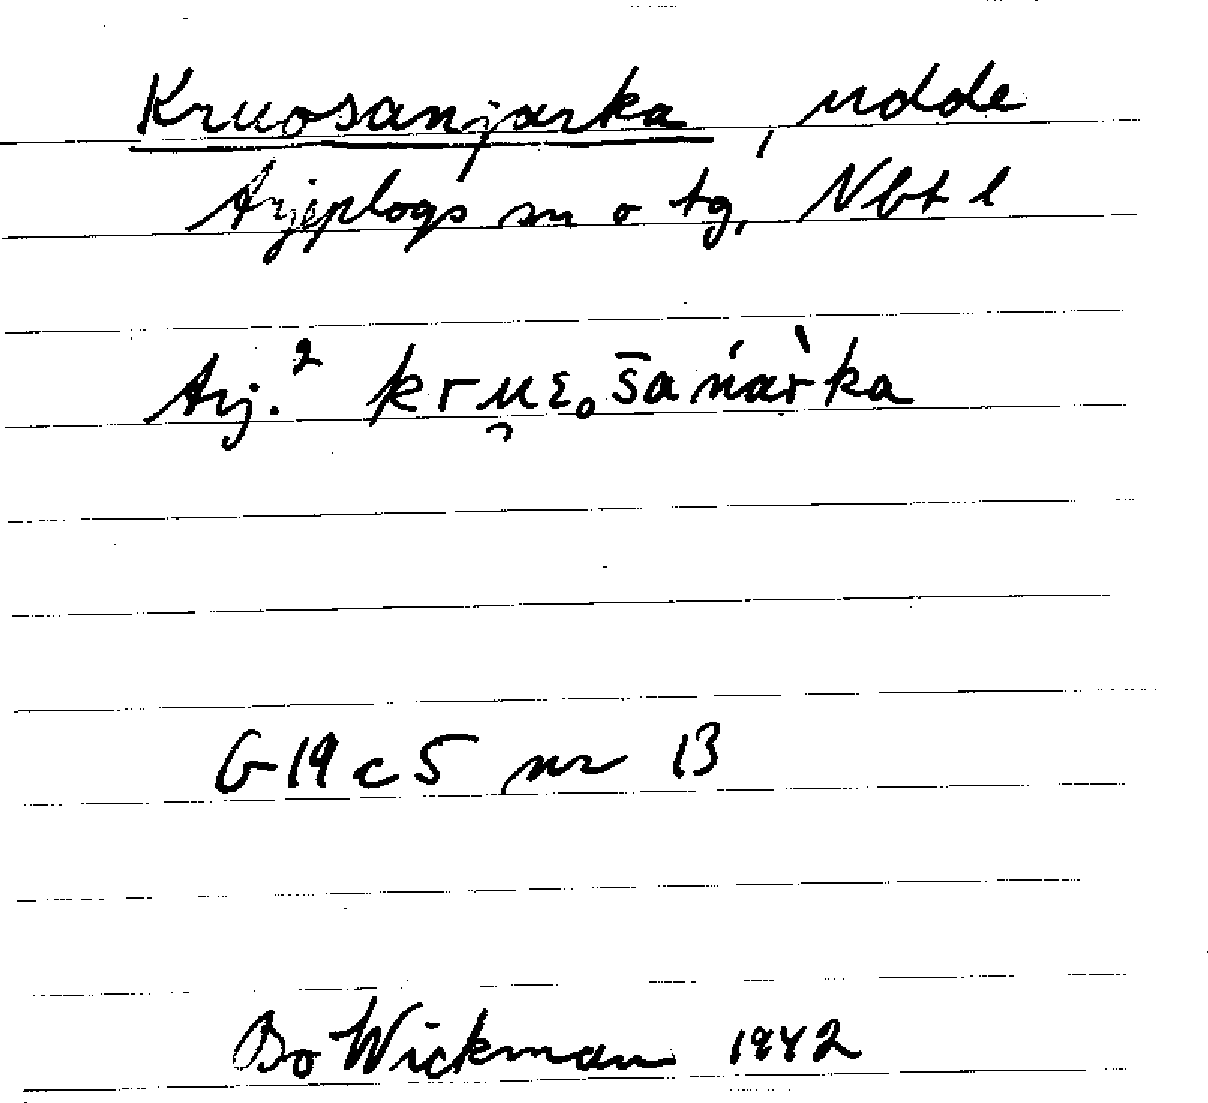 Kruosanjarka, udde
Arjeplogs sn o tg, Nbt l
Arj.² kru̯ɛ̥s̄ańaŕ̀ka
G19c5 nr 13
Bo Wickman 1942